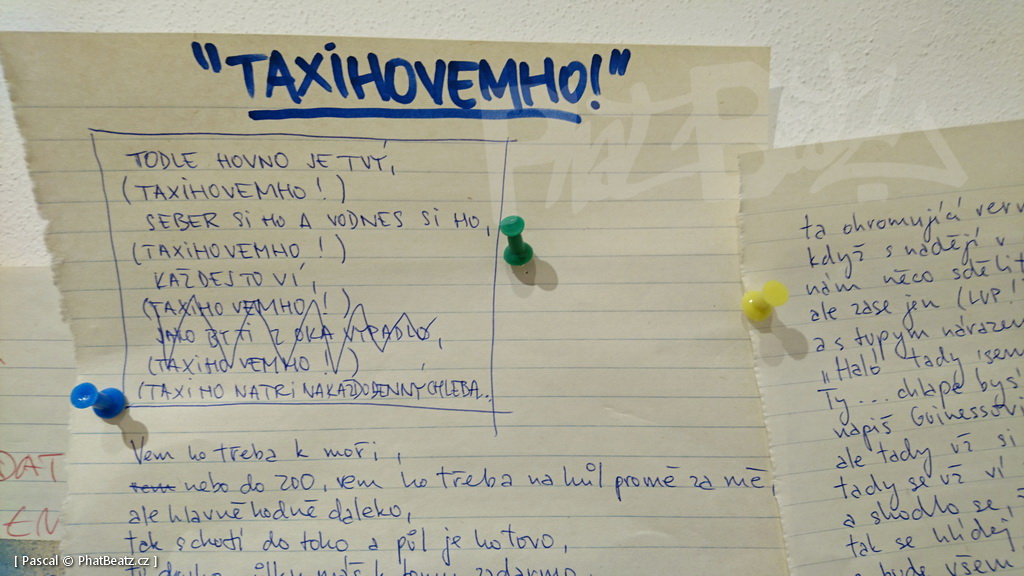 "TAXIHOVEMHO!"
TODLE HOVNO JE TVÝ,
(TAXIHOVEMHO!)
SEBER SI HO A VODNES SI HO,
(TAXIHOVEMHO!)
KAŽDEJ TO VÍ,
(TAXIHOVEMHO!)
JAKO BY TI Z OKA VYPADLO,
(TAXIHOVEMHO!)
(TAXI HO NATRI NA KAŽDODENNÝ CHLEBA.
Vem ho třeba k moři,
nebo do ZOO, vem ho třeba na kůl promě za mě,
ale hlavně hodně daleko,
tak s chutí do toho a půl je hotovo,
ta ohromující
když s nadějí v
nám něco sdělit
ale zase jen (LVP!
a s tupým nárazem
"Haló tady jsem
Ty... chlape bys
napiš Guinessovi
ale tady už si
tady se už ví
a shodlo se,
tak se hlídej
a bude všem
DAT
EN
Phat Beatz
[ Pascal © PhatBeatz.cz ]